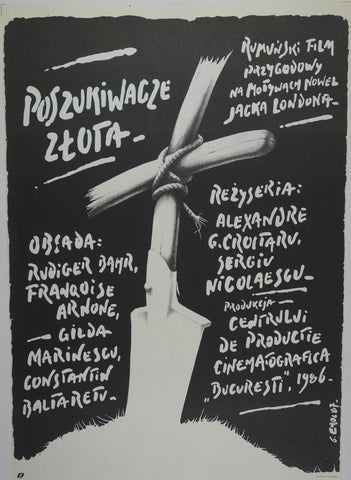 POSZUKIWACZE
ZŁOTA
RUMUŃSKI FILM
PRZYGODOWY
NA MOTYWACH NOWEL
JACKA LONDONA
OBSADA:
RUDIGER BAHR,
FRANQOISE
ARNONE,
GILDA
MARINESCU,
CONSTANTIN
BALTARETU
REŻYSERIA:
ALEXANDRE
G.CROITARU,
SERGIU
NICOLAESCU
PRODUKCJA
CENTRULUI
DE PRODUCTIE
CINEMATOGRAFICA
„BUCURESTI", 1986.